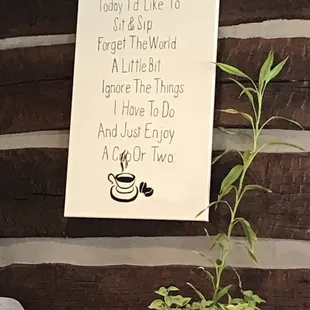 Today I'd Like To
Sit & Sip
Forget The World
A Little Bit
Ignore The Things
I Have To Do
And Just Enjoy
A Cup Or Two.